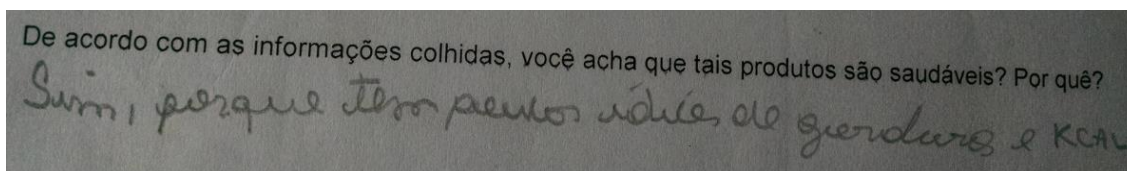 De acordo com as informações colhidas, você acha que tais produtos são saudáveis? Por quê?
Sim, porque tem poucos de gorduras e KCAL